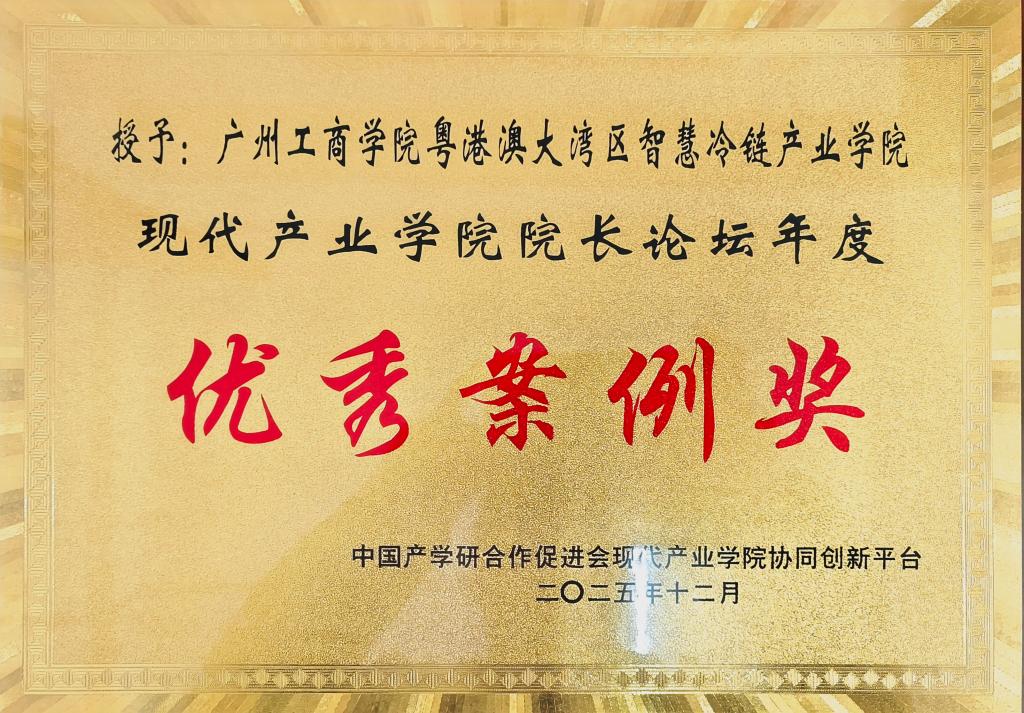 授予：广州工商学院粤港澳大湾区智慧冷链产业学院
现代产业学院院长论坛年度
优秀案例奖
中国产学研合作促进会现代产业学院协同创新平台
二〇二五年十二月